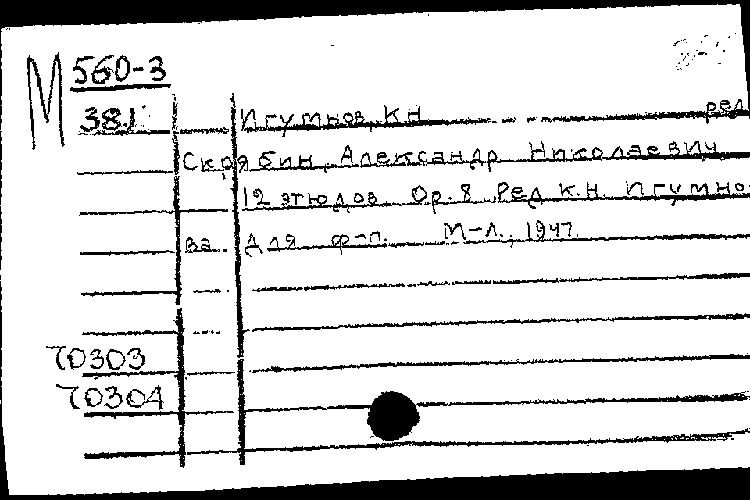 М 560-3
381
Игумнов, К.Н. ред.
Скрябин, Александр Николаевич
12 этюдов Op. 8 Ред К.Н. Игумно-
ва. Для ф-п. М-Л., 1947.
70303
70304